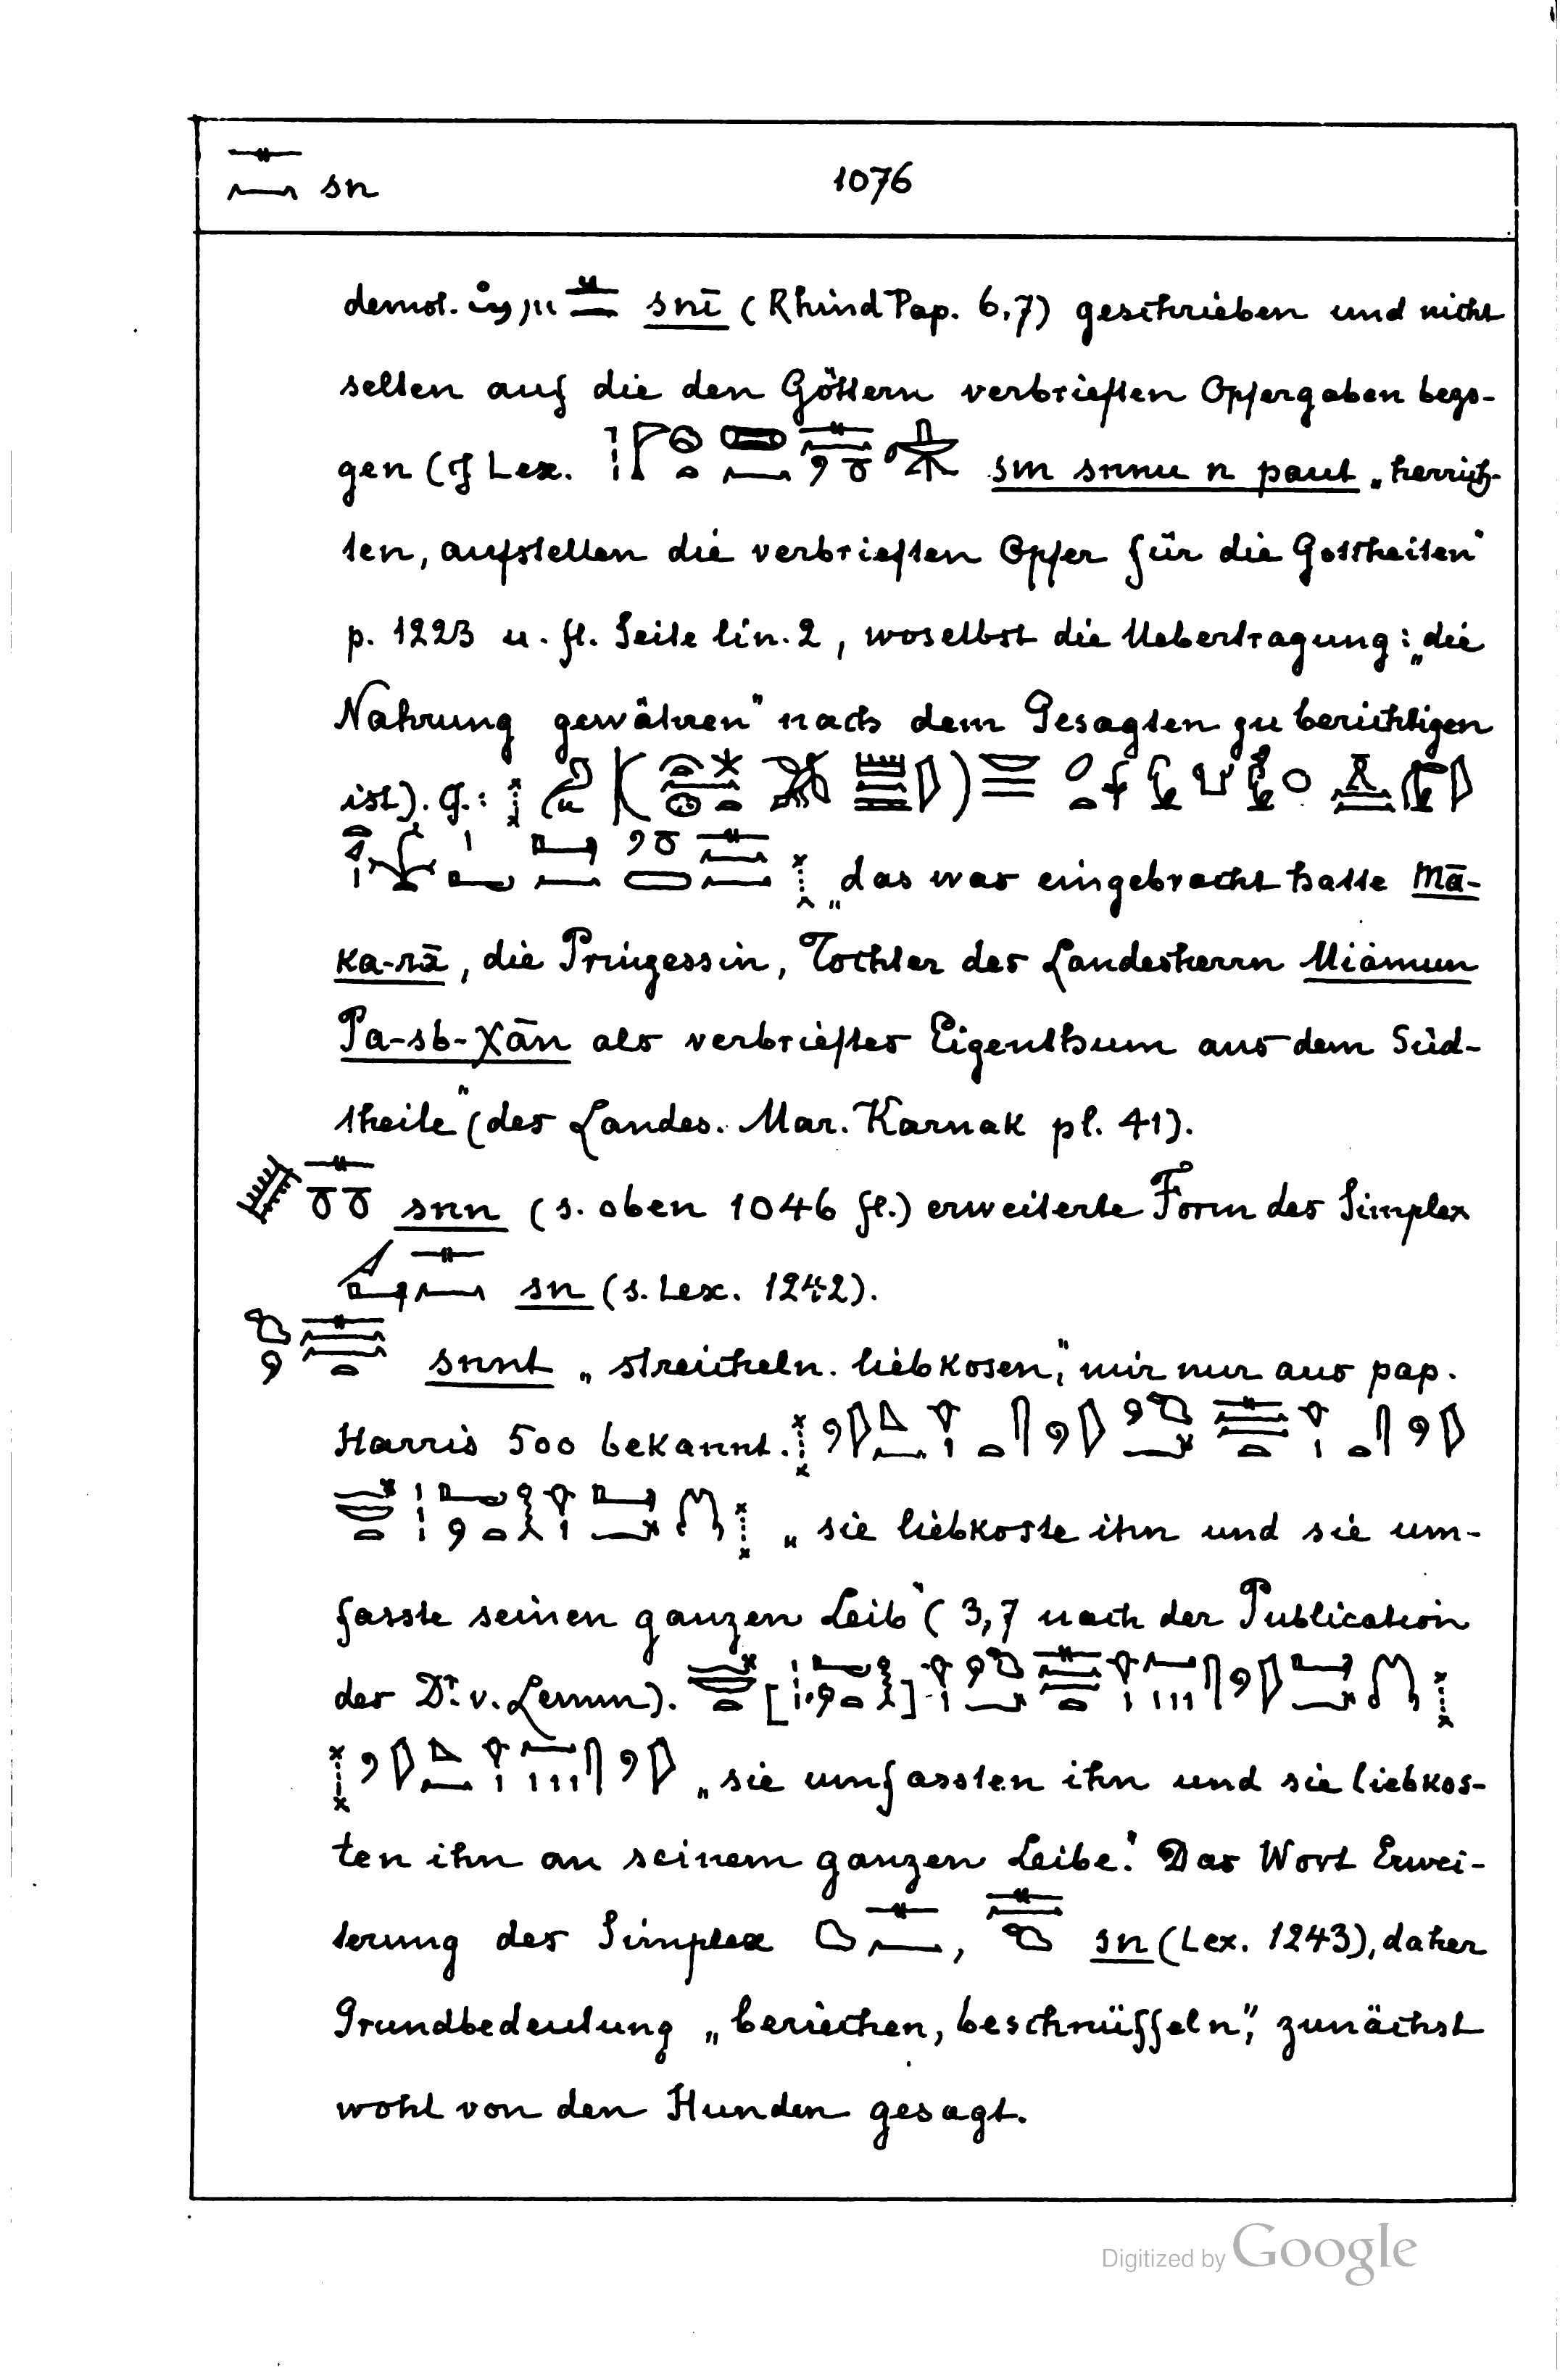 sn 1076
demot. snī (Rhind Pap. 6,7) geschrieben und nicht
selten auf die den Göttern verbrieften Opfergaben bezo-
gen (cf Lex. sm snnu n paut „herrich-
ten, aufstellen die verbrieften Opfer für die Gottheiten"
p. 1223 u. fl. Seite lin. 2, woselbst die Uebertragung: „die
Nahrung gewähren" nach dem Gesagten zu berichtigen
ist). cf.:
„das was eingebracht hatte Mā-
ka-rā, die Prinzessin, Tochter des Landesherrn Miȧmun
Pa-sb-χān als verbrieftes Eigenthum aus dem Süd-
theile" (des Landes. Mar. Karnak pl. 41).
snn (s. oben 1046 fl.) erweiterte Form des Simplex
sn (s. Lex. 1242).
snnt „streicheln. liebkosen," mir nur aus pap.
Harris 500 bekannt.
„sie liebkoste ihn und sie um-
fasste seinen ganzen Leib" (3,7 nach der Publication
des Dr. v. Lemm).
„sie umfassten ihn und sie liebkos-
ten ihn an seinem ganzen Leibe." Das Wort Erwei-
terung des Simplex , sn (Lex. 1243), daher
Grundbedeutung „beriechen, beschnüffeln", zunächst
wohl von den Hunden gesagt.
Digitized by Google